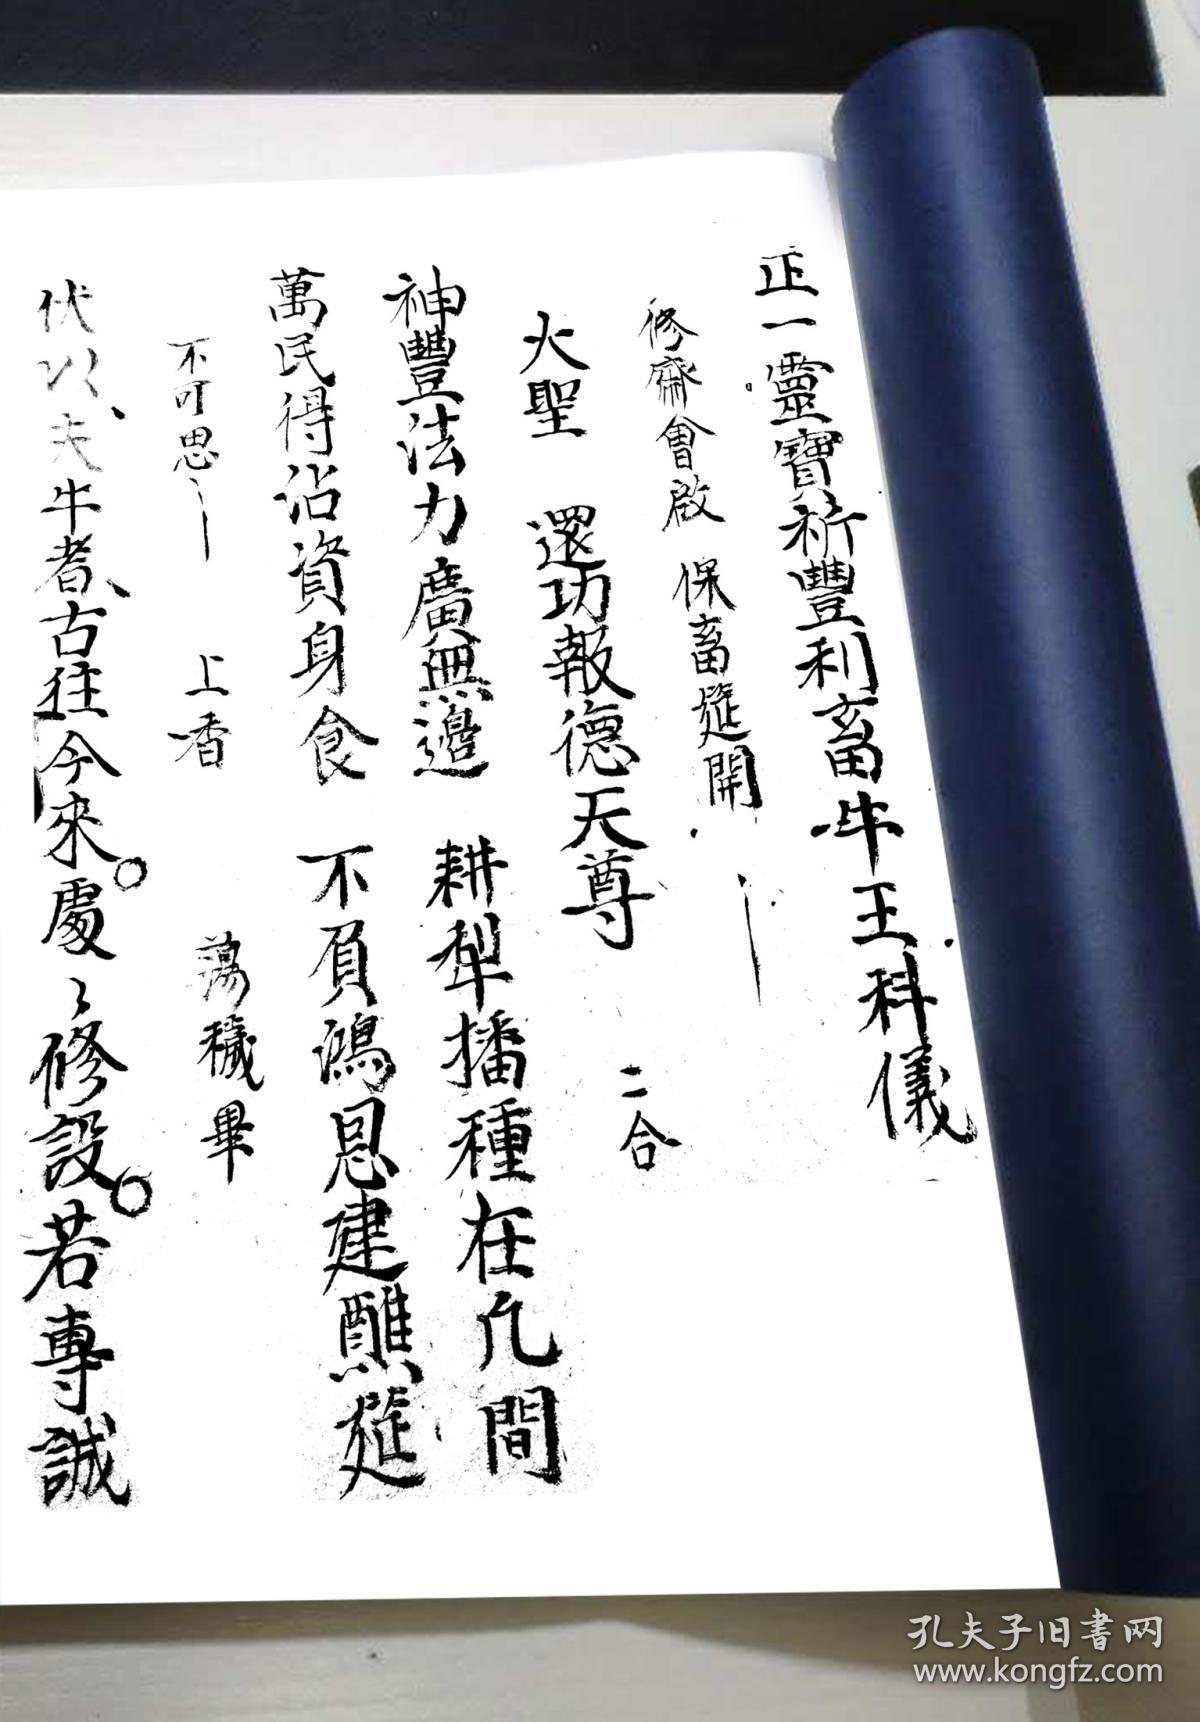 正一靈寶祈豐利畜牛王科儀
修齋會啟 保畜筵開
大聖 還功報德天尊 二合
神豐法力廣無邊 耕犁播種在凡間
萬民得沾資身食 不負鴻恩建醮筵
不可思〻 上香 蕩穢畢
伏以、夫牛者、古往今來。處〻修設。若專誠
孔夫子旧书网
www.kongfz.com